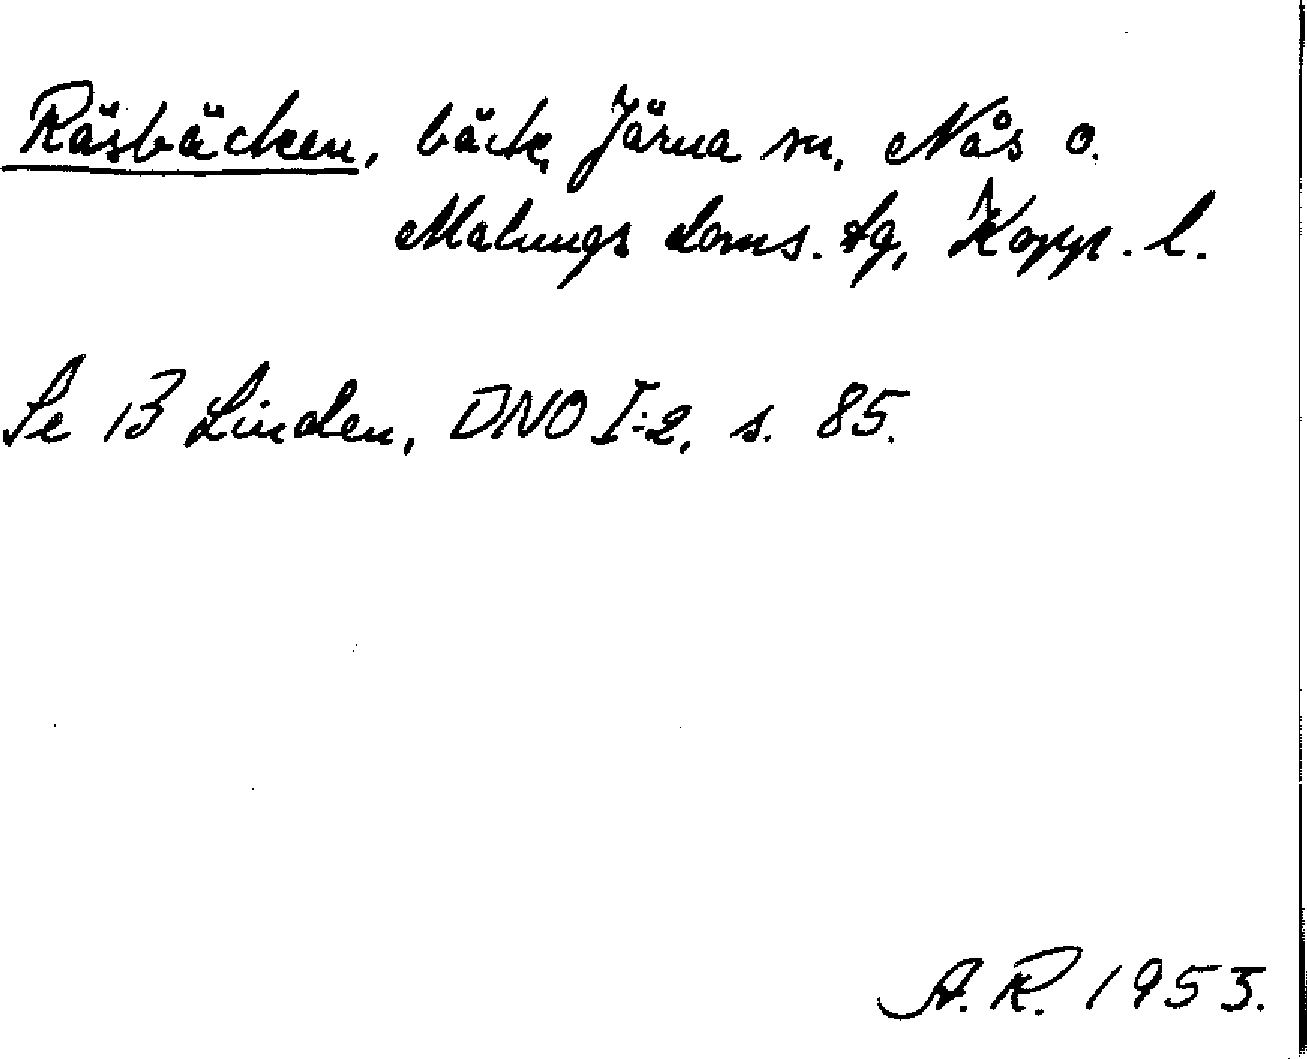 Räsbäcken, bäck, Järna sn, Nås o.
Malungs doms. tg, Kopp. l.
Se B Linden, DNO I:2, s. 85.
A. R. 1953.